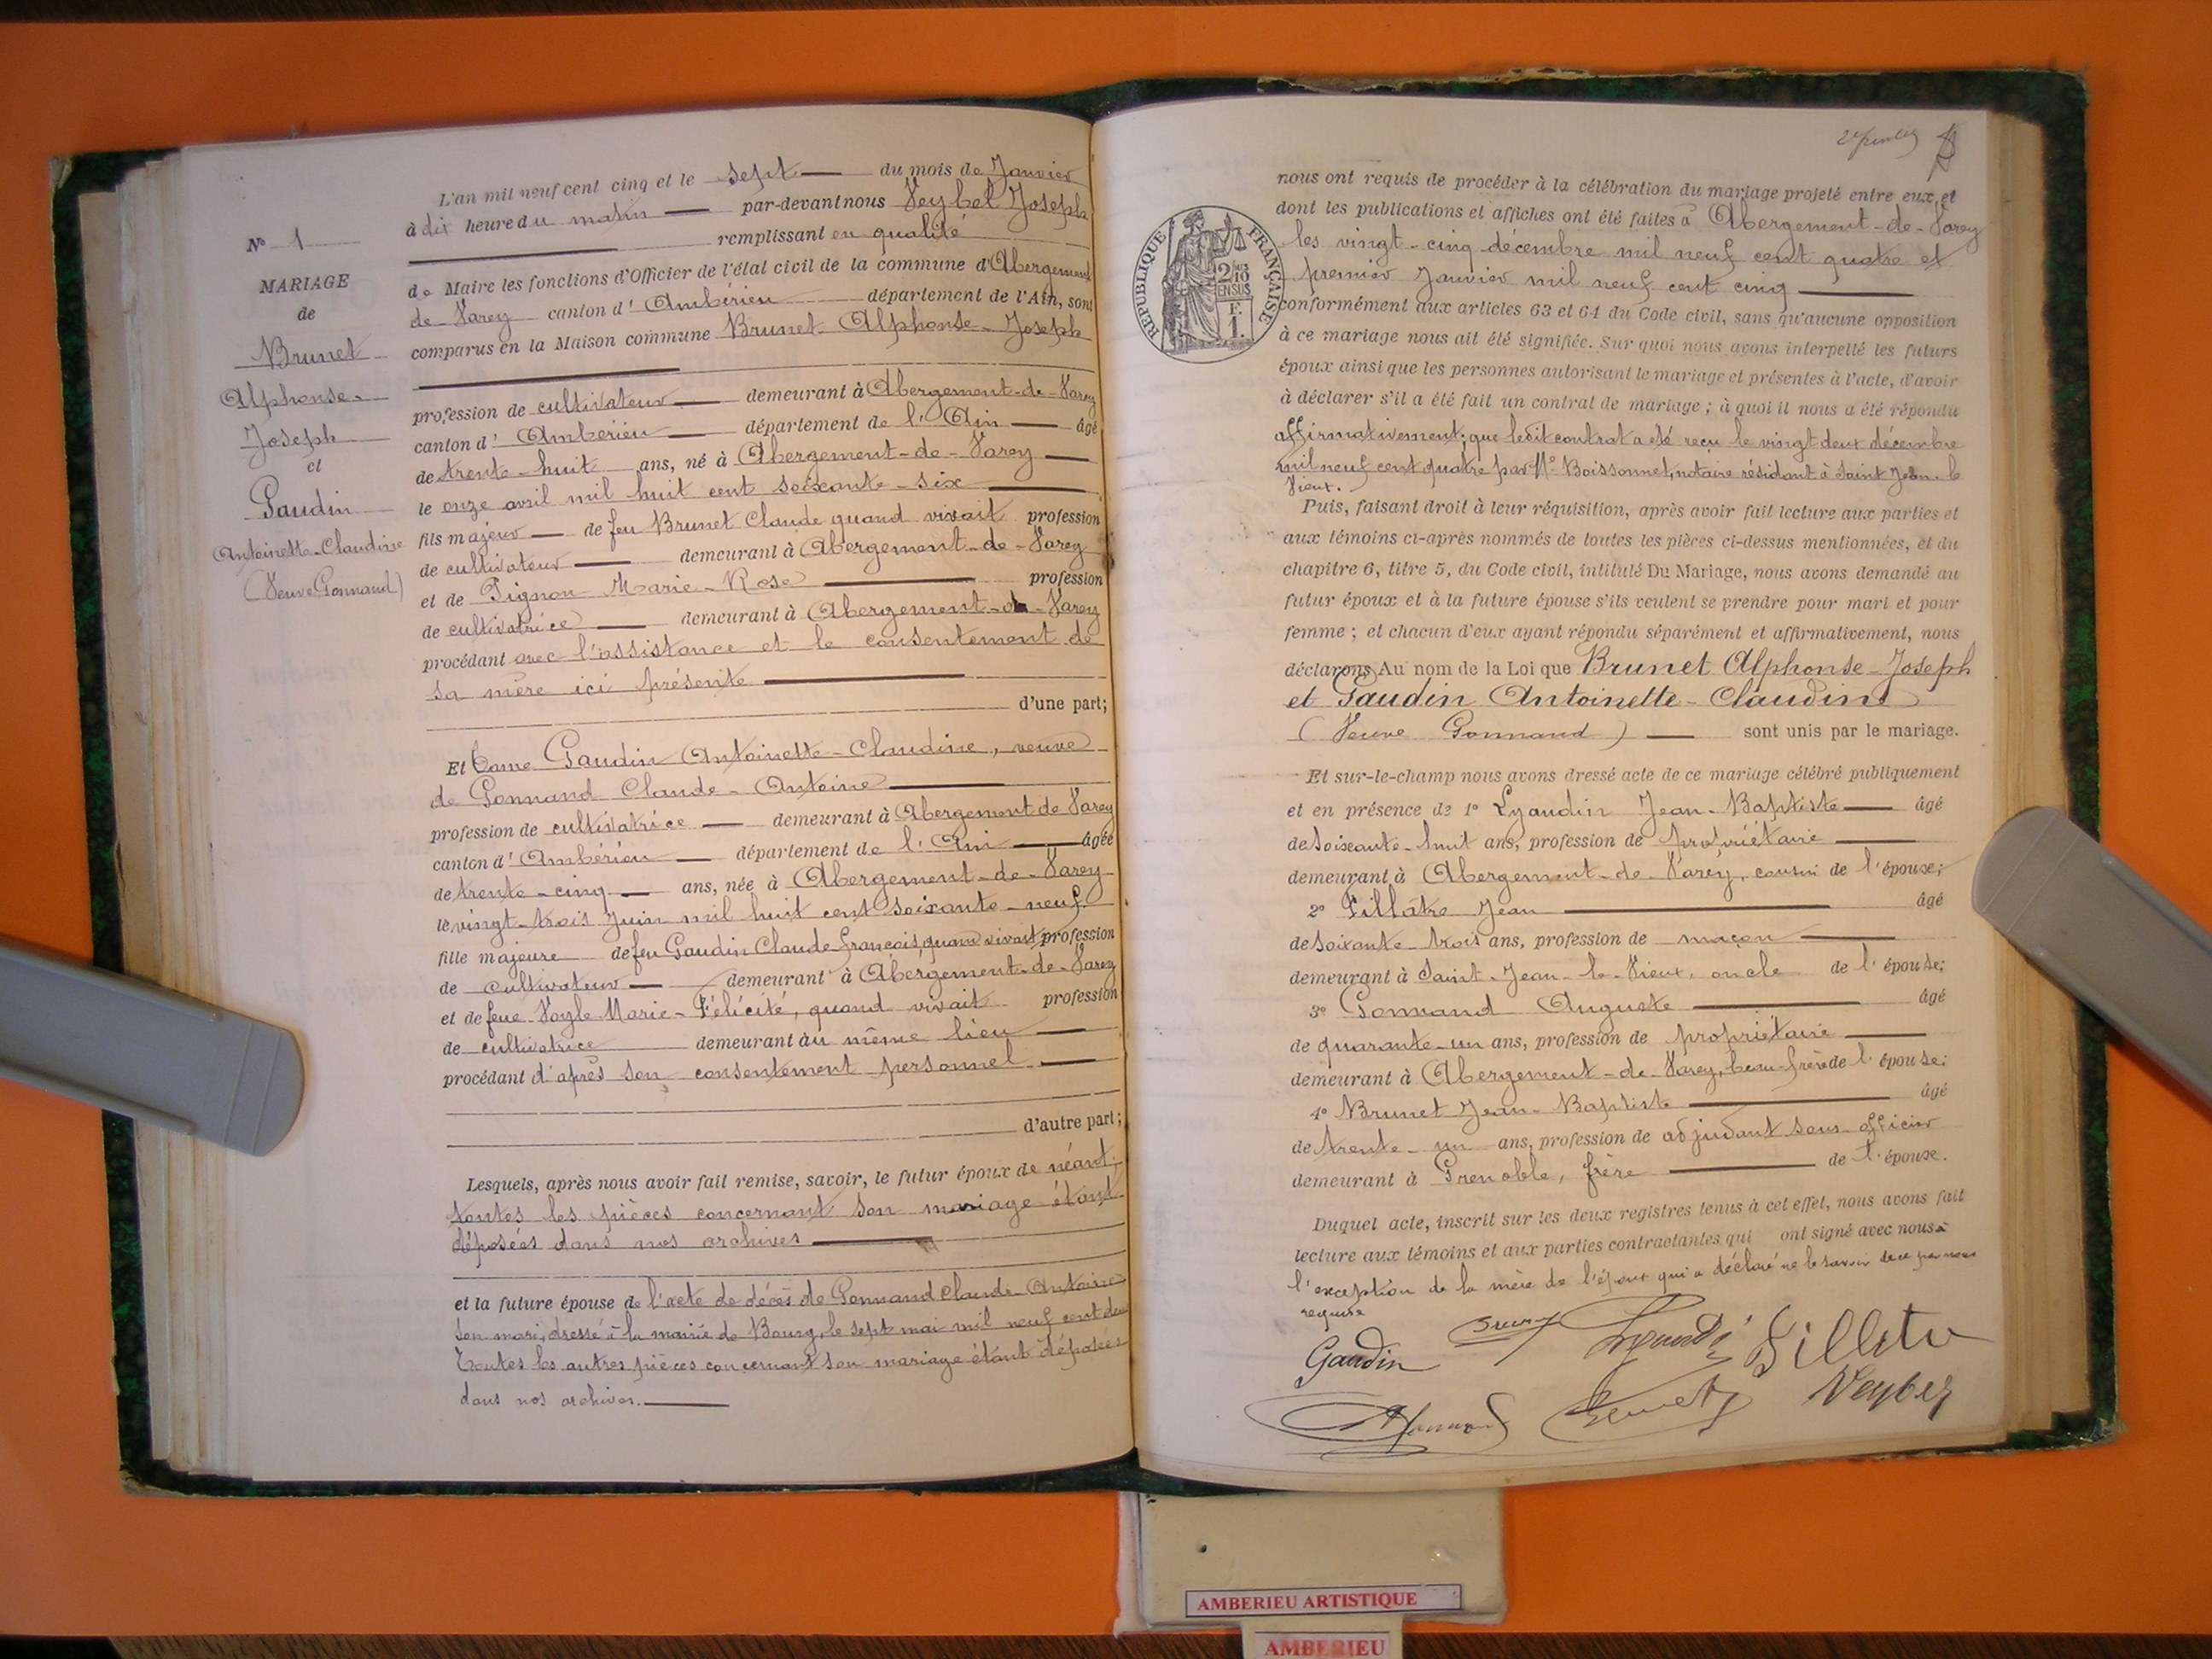 N° 1
MARIAGE
de
Brunet
Alphonse
Joseph
et
Gaudin
Antoinette-Claudine
(Veuve Gonnand)
L'an mil neuf cent cinq et le sept du mois de Janvier
à dix heure du matin par-devant nous Veybel Joseph
remplissant en qualité
de Maire les fonctions d'Officier de l'état civil de la commune d'Abergement
de Varey canton d' Ambérieu département de l'Ain, sont
comparus en la Maison commune Brunet Alphonse-Joseph
profession de cultivateur demeurant à Abergement-de-Varey
canton d' Ambérieu département de l' Ain âgé
de trente-huit ans, né à Abergement-de-Varey
le onze avril mil huit cent soixante-six
fils majeur de feu Brunet Claude quand vivait profession
de cultivateur demeurant à Abergement-de-Varey
et de Pignon Marie-Rose profession
de cultivatrice demeurant à Abergement-de-Varey
procédant avec l'assistance et le consentement de
sa mère ici présente
d'une part;
Et Dame Gaudin Antoinette-Claudine, veuve
de Gonnand Claude-Antoine
profession de cultivatrice demeurant à Abergement de Varey
canton d' Ambérieu département de l' Ain âgée
de trente-cinq ans, née à Abergement-de-Varey
le vingt-trois Juin mil huit cent soixante-neuf
fille majeure de feu Gaudin Claude-François, quand vivait, profession
de cultivateur demeurant à Abergement-de-Varey
et de feue Vayle Marie-Félicité, quand vivait profession
de cultivatrice demeurant au même lieu
procédant d'après son consentement personnel
d'autre part;
Lesquels, après nous avoir fait remise, savoir, le futur époux de néant,
toutes les pièces concernant son mariage étant
déposées dans nos archives
et la future épouse de l'acte de décès de Gonnand Claude-Antoine
son mari, dressé à la mairie de Bourg, le sept mai mil neuf cent deux
Toutes les autres pièces concernant son mariage étant déposées
dans nos archives.
REPUBLIQUE FRANÇAISE
2/10 EN SUS
F. 1.
nous ont requis de procéder à la célébration du mariage projeté entre eux et
dont les publications et affiches ont été faites à Abergement-de-Varey
les vingt-cinq décembre mil neuf cent quatre et
premier Janvier mil neuf cent cinq
conformément aux articles 63 et 64 du Code civil, sans qu'aucune opposition
à ce mariage nous ait été signifiée. Sur quoi nous avons interpellé les futurs
époux ainsi que les personnes autorisant le mariage et présentes à l'acte, d'avoir
à déclarer s'il a été fait un contrat de mariage ; à quoi il nous a été répondu
affirmativement; que ledit contrat a été reçu le vingt deux décembre
mil neuf cent quatre par Me Boissonnet, notaire résidant à Saint Jean-le
Vieux.
Puis, faisant droit à leur réquisition, après avoir fait lecture aux parties et
aux témoins ci-après nommés de toutes les pièces ci-dessus mentionnées, et du
chapitre 6, titre 5, du Code civil, intitulé Du Mariage, nous avons demandé au
futur époux et à la future épouse s'ils veulent se prendre pour mari et pour
femme ; et chacun d'eux ayant répondu séparément et affirmativement, nous
déclarons Au nom de la Loi que Brunet Alphonse-Joseph
et Gaudin Antoinette-Claudine
(Veuve Gonnand) sont unis par le mariage.
Et sur-le-champ nous avons dressé acte de ce mariage célébré publiquement
et en présence de 1° Lyaudin Jean-Baptiste âgé
de soixante-huit ans, profession de propriétaire
demeurant à Abergement-de-Varey, cousin de l'épouse;
2° Fillâtre Jean âgé
de soixante-trois ans, profession de maçon
demeurant à Saint-Jean-le-Vieux, oncle de l'épouse;
3° Gonnand Auguste âgé
de quarante-un ans, profession de propriétaire
demeurant à Abergement-de-Varey, beau-frère de l'épouse;
4° Brunet Jean-Baptiste âgé
de trente-un ans, profession de adjudant sous officier
demeurant à Grenoble, frère de l'époux.
Duquel acte, inscrit sur les deux registres tenus à cet effet, nous avons fait
lecture aux témoins et aux parties contractantes qui ont signé avec nous à
l'exception de la mère de l'époux qui a déclaré ne le savoir de ce par nous
requise
Gaudin
Veybel
AMBERIEU ARTISTIQUE
AMBERIEU